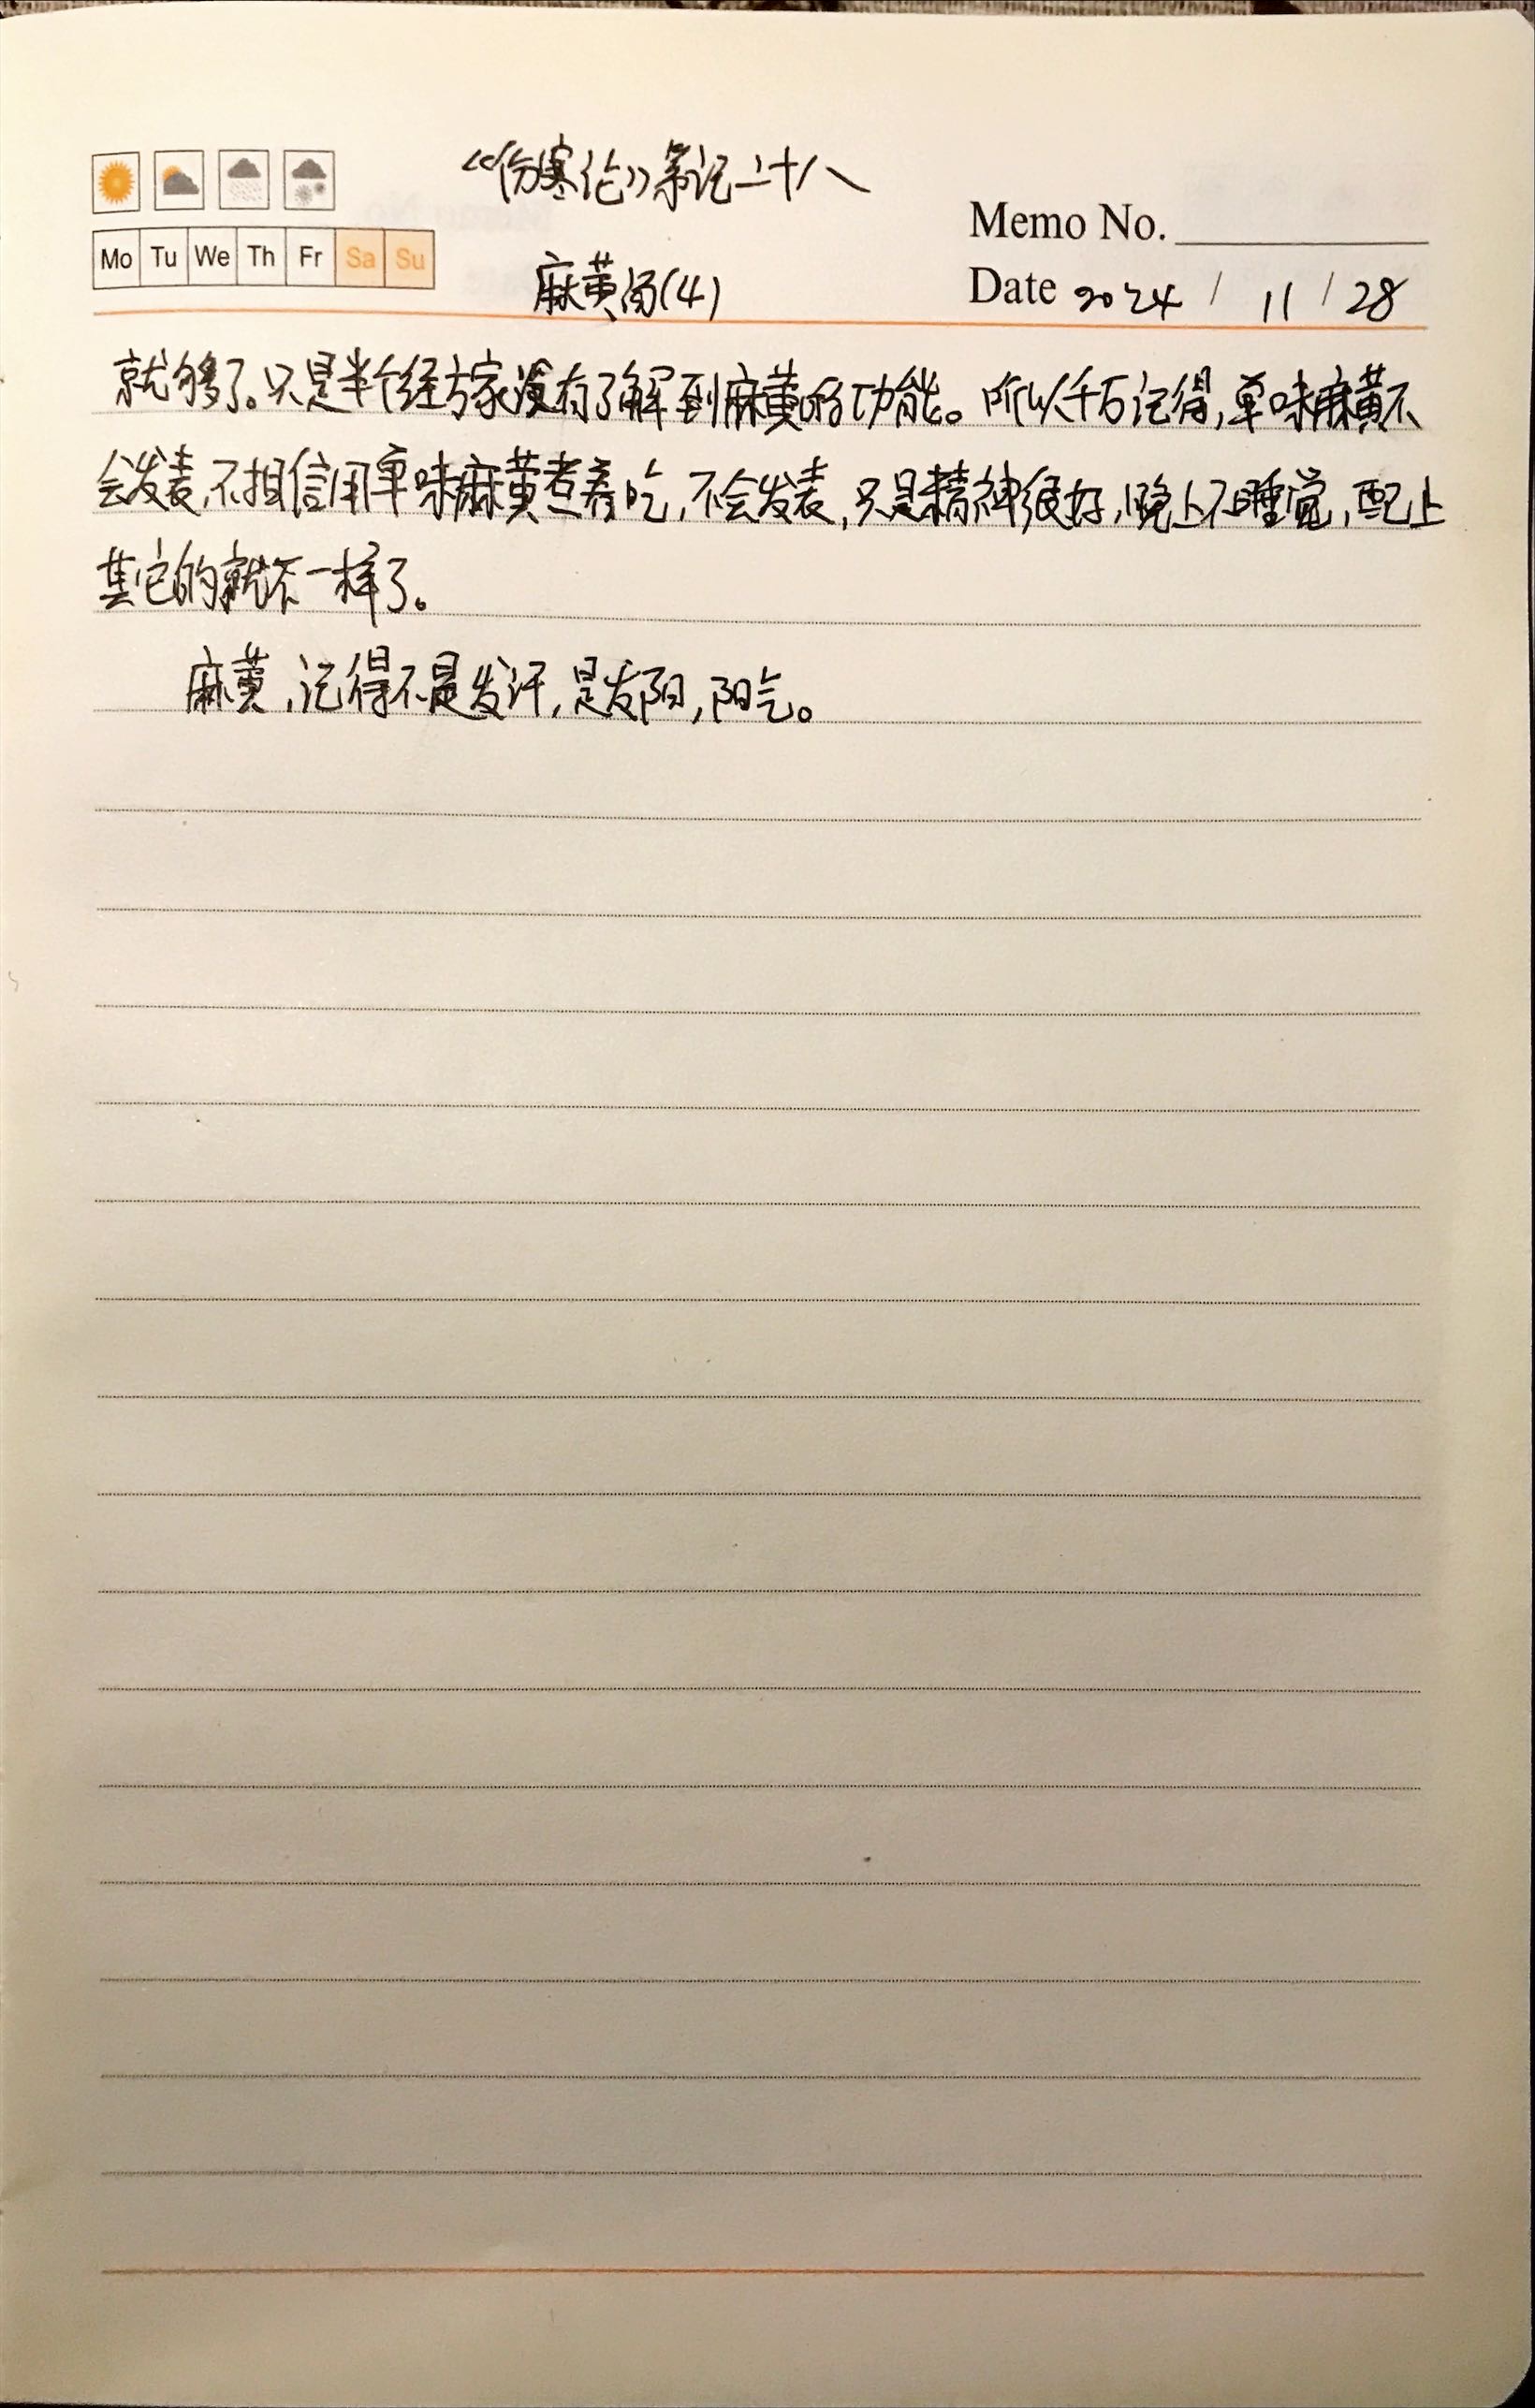 《伤寒论》条记二十八
Memo No.
Mo Tu We Th Fr Sa Su
麻黄汤(4)
Date 2024 / 11 / 28
就够了。只是半个经方家没有了解到麻黄的功能。所以千万记得,单味麻黄不
会发表,不相信用单味麻黄煮着吃,不会发表,只是精神很好,晚上不睡觉,配上
其它的就不一样了。
麻黄,记得不是发汗,是发阳,阳气。